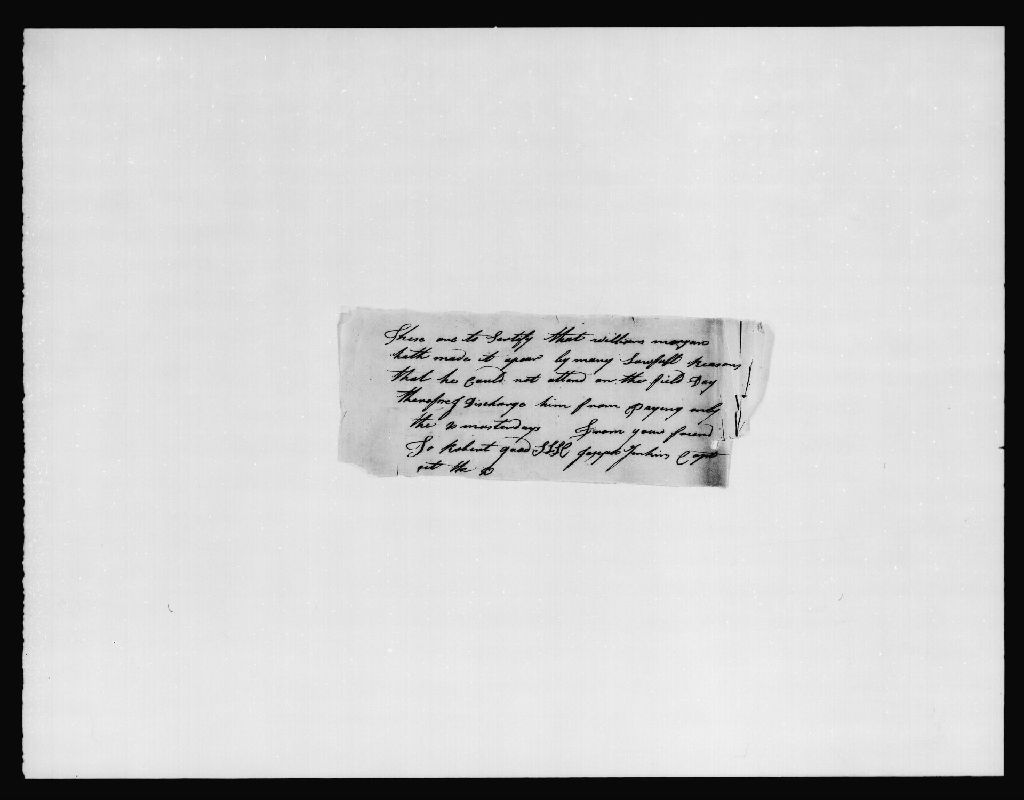 These are to Sertify that william morgan
hath made it apear by many Lawfull Reasons
that he Could not attend on the field Day
therefore Discharge him from Paying only
the 2 musterdays From your friend
To Robert good Jenkins Capt
the